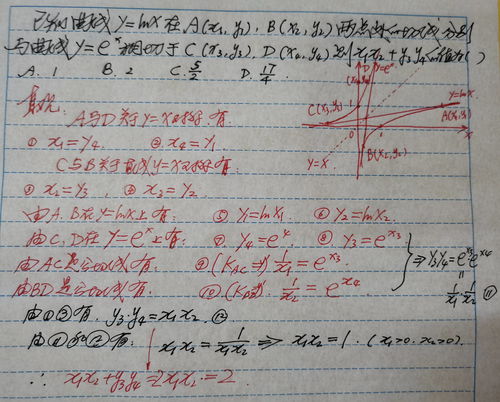 已知曲线 y=lnx 在 A(x₁,y₁), B(x₂,y₂) 两点处的切线分别
与曲线 y=eˣ 相切于 C(x₃,y₃), D(x₄,y₄) 则 x₁x₂+y₃y₄ 的值为( )
A. 1 B. 2 C. 5/2 D. 17/4
A与D关于y=x对称 有.
① x₁=y₄. ② x₄=y₁
C与B关于直线y=x对称有.
③ x₂=y₃ ④ x₃=y₂
由A.B在y=lnx上有: ⑤ y₁=lnx₁ ⑥ y₂=lnx₂
由C.D在y=eˣ上有: ⑦ y₄=eˣ⁴ ⑧ y₃=eˣ³
由AC是公切线有. ⑨ (K_AC=) 1/x₁=eˣ³
由BD是公切线有. ⑩ (K_BD=) 1/x₂=eˣ⁴
⇒ y₃y₄=eˣ³eˣ⁴
= 1/x₁ 1/x₂ ⑪
由①③有. y₃·y₄=x₁x₂ ⑫
由⑪和⑫有: x₁x₂=1/(x₁x₂) ⇒ x₁x₂=1. (x₁>0. x₂>0)
∴ x₁x₂+y₃y₄=2x₁x₂=2.
(x₄,y₄)
y=eˣ
C(x₃,y₃)
y=lnx
A(x₁,y₁)
B(x₂,y₂)
y=x
0
x